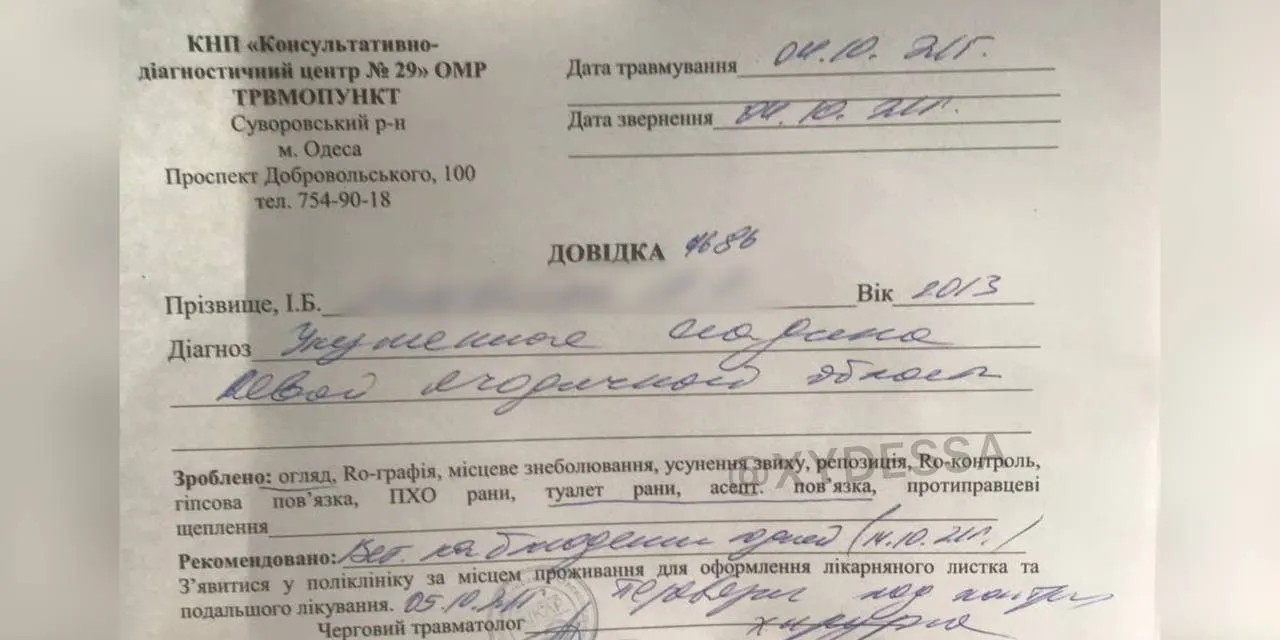 КНП «Консультативно-
діагностичний центр № 29» ОМР
ТРВМОПУНКТ
Суворовський р-н
м. Одеса
Проспект Добровольського, 100
тел. 754-90-18
Дата травмування 04.10. 21г.
Дата звернення 04.10.21г.
ДОВІДКА
Прізвище, І.Б. Вік 2013
Діагноз Укушенная
левой ягодичной области
@XYDESSA
Зроблено: огляд, Ro-графія, місцеве знеболювання, усунення звиху, репозиція, Ro-контроль,
гіпсова пов’язка, ПХО рани, туалет рани, асепт. пов’язка, протиправцеві
щеплення
Рекомендовано: Вет. наблюдение (14.10.21г.)
З’явитися у поліклініку за місцем проживання для оформлення лікарняного листка та
подальшого лікування. 05.10.21г
Черговий травматолог хирурга